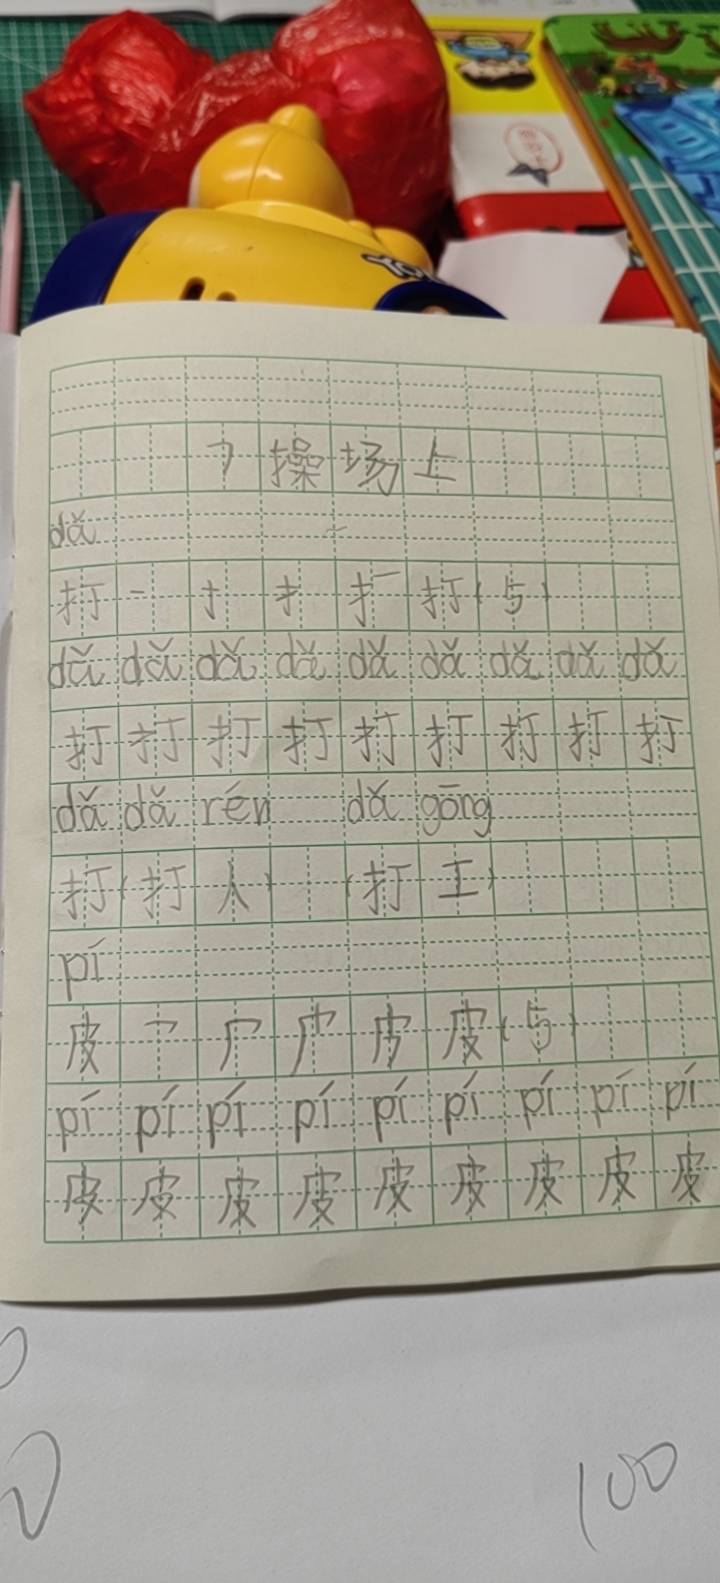 7 操场上
dǎ
打 一 扌 扌 打 打(5)
dǎ dǎ dǎ dǎ dǎ dǎ dǎ dǎ dǎ
打 打 打 打 打 打 打 打 打
dǎ dǎ rén dǎ gōng
打(打人) (打工)
pí
皮 乛 厂 广 皮 皮(5)
pí pí pí pí pí pí pí pí pí
皮 皮 皮 皮 皮 皮 皮 皮 皮
100